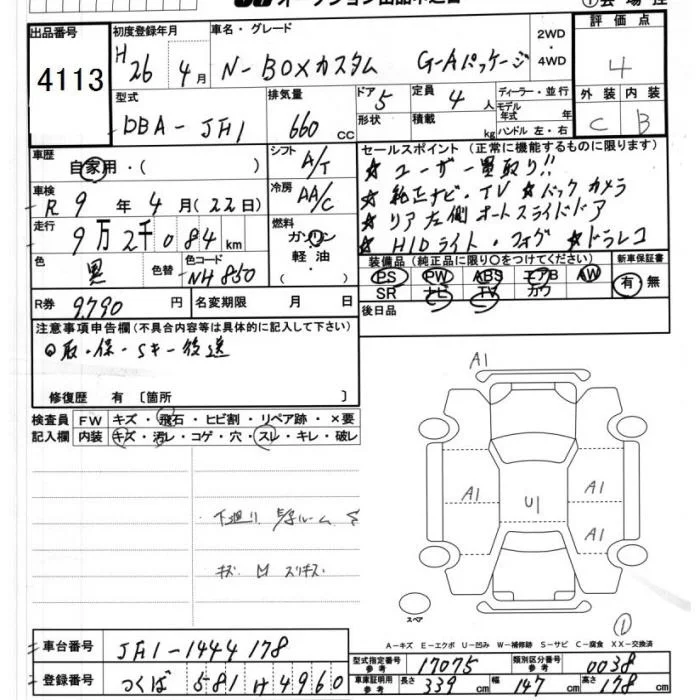 ①会場控
出品番号 4113
初度登録年月 H26年4月
車名・グレード N-BOXカスタム G-Aパッケージ
2WD・4WD
評価点 4
外装 C 内装 B
型式 DBA-JF1
排気量 660 cc
ドア 5 形状
定員 4 人 積載 kg
ディーラー・並行
モデル年式 年
ハンドル 左・右
車歴 自家用・( )
シフト A/T
車検 R9年4月(22日)
冷房 AA/C
走行 9万2千084km
燃料 ガソリン・軽油・( )
色 黒 色替 色コード NH850
R券 9,790円
名変期限 月 日
セールスポイント(正常に機能するものに限ります)
★ユーザー買取り!!
★純正ナビ・TV ★バックカメラ
★リア左側オートスライドドア
★HIDライト・フォグ ★ドラレコ
装備品(純正品に限り○をつけてください)
PS PW ABS エアB AW
SR ナビ TV カワ
新車保証書 有・無
後日品
注意事項申告欄(不具合内容等は具体的に記入して下さい)
◎取・保・Sキー後送
修復歴 有〔箇所 〕
検査員記入欄
FW キズ・飛石・ヒビ割・リペア跡・×要
内装 キズ・汚レ・コゲ・穴・スレ・キレ・破レ
下廻り E/gルーム S
キズ H スリキズ
A1
A1
A1
U1
A1
スペア
①
A-キズ E-エクボ U-凹み W-補修跡 S-サビ C-腐食 XX-交換済
車台番号 JF1-1444178
登録番号 つくば 581 H 4960
型式指定番号 参考 17075
類別区分番号 参考 0038
車庫証明用 参考 長さ 339cm 幅 147cm 高さ 178cm